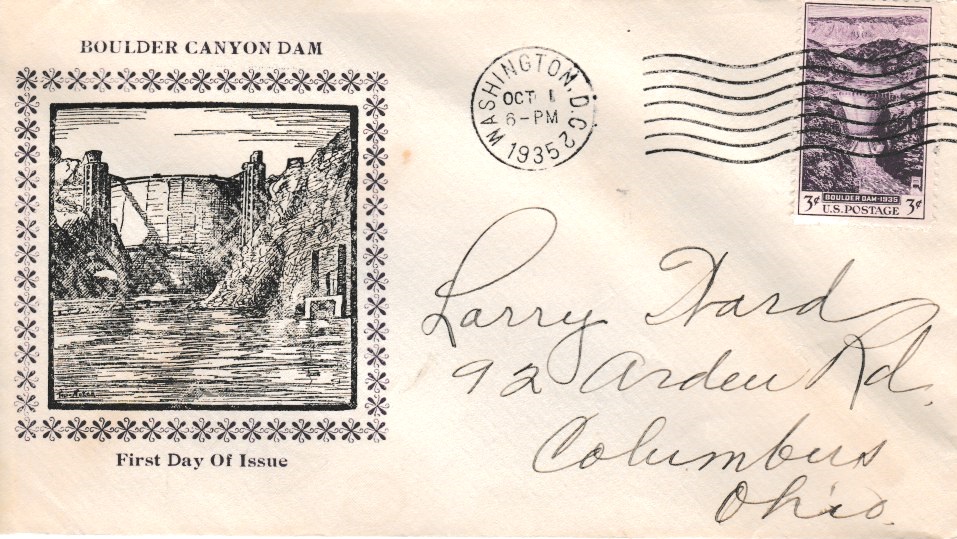 BOULDER CANYON DAM
First Day Of Issue
WASHINGTON, D.C. 2
OCT 1
6-PM
1935
3¢ BOULDER DAM-1935 3¢
U.S. POSTAGE
Larry Ward
92 Arden Rd.
Columbus
Ohio.